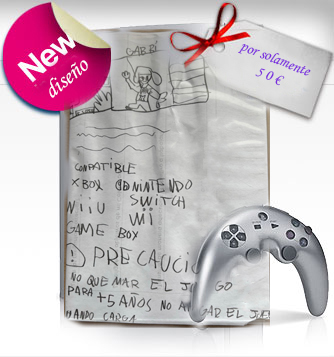 New
diseño
por solamente
50€
GABRI
COMPATIBLE
XBOX NINTENDO
WiiU SWITCH
Wii
GAME BOX
! PRECAUCIO
NO QUEMAR EL JUEGO
PARA +5 AÑOS NO EL
MANDO CARGA